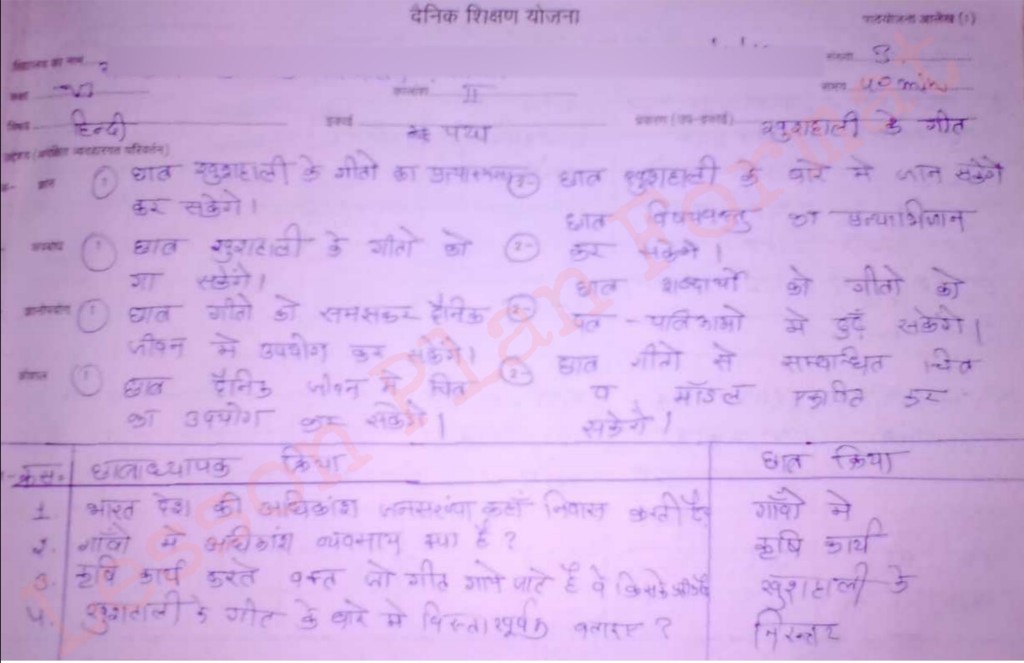 दैनिक शिक्षण योजना
पाठयोजना आलेख (1)
विद्यालय का नाम
संख्या 3
कक्षा VI कालांश II समय 40 min
विषय हिन्दी इकाई पद्य प्रकरण (उप-इकाई) खुशहाली के गीत
उद्देश्य (अपेक्षित व्यवहारगत परिवर्तन)
ज्ञान 1 छात्र खुशहाली के गीतो का प्रत्यास्मरण 2- छात्र खुशहाली के बारे मे जान सकेंगे
कर सकेगे। छात्र विषयवस्तु का प्रत्याभिज्ञान
अवबोध 1 छात्र खुशहाली के गीतो को 2- कर सकेगे।
गा सकेंगे। छात्र शब्दार्थो को गीतो को
ज्ञानोपयोग 1 छात्र गीतो को समझकर दैनिक 2- पत्र-पत्रिकाओ मे ढुढँ सकेंगे।
जीवन मे उपयोग कर सकेंगे। छात्र गीतो से सम्बन्धित चित्र
कौशल 1 छात्र दैनिक जीवन मे चित्र 2- व मॉडल एकत्रित कर
का उपयोग कर सकेंगे। सकेगे।
क्रस. छात्राध्यापक क्रिया छात्र क्रिया
1. भारत देश की अधिकांश जनसंख्या कहाँ निवास करती है? गाँवो मे
2. गाँवो मे अधिकांश व्यवसाय क्या है? कृषि कार्य
3. कृषि कार्य करते वक्त जो गीत गाये जाते है वे किसके गीत है खुशहाली के
4. खुशहाली के गीत के बारे मे विस्तारपूर्वक बताइए? निरुत्तर
Lesson Plan Format